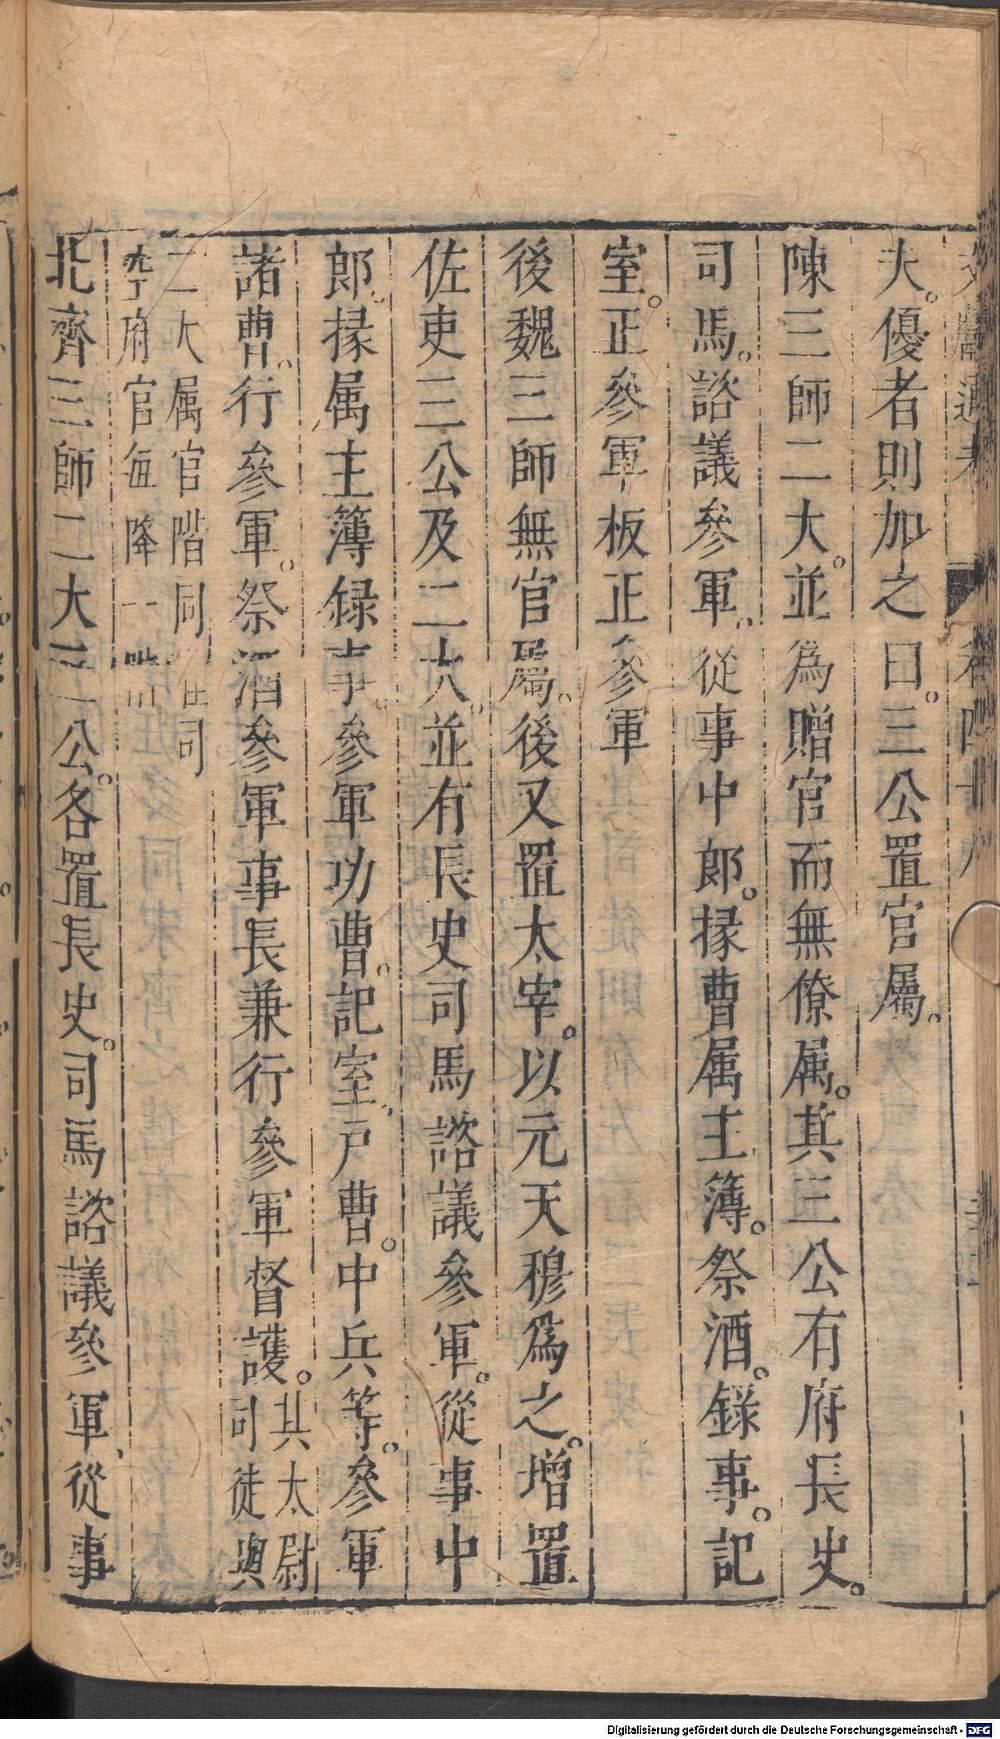 夫。優者則加之曰。三公置官屬。
陳三師二大。並為贈官而無僚属。其三公有府長史。
司馬。諮議參軍。從事中郎。掾曹属主簿。祭酒。錄事。記
室。正參軍板正參軍
後魏三師無官屬。後又置太宰。以元天穆爲之。增置
佐吏三公及二大。並有長史司馬諮議參軍。從事中
郎。掾属主簿録事。參軍功曹。記室。戸曹。中兵等。參軍
諸曹。行參軍。祭酒參軍事長兼行參軍督護。其太尉
司徒與
二大属官階同
司
府官每降一
北齊三師二大三公。各置長史。司馬諮議參軍。從事
Digitalisierung gefördert durch die Deutsche Forschungsgemeinschaft - DFG